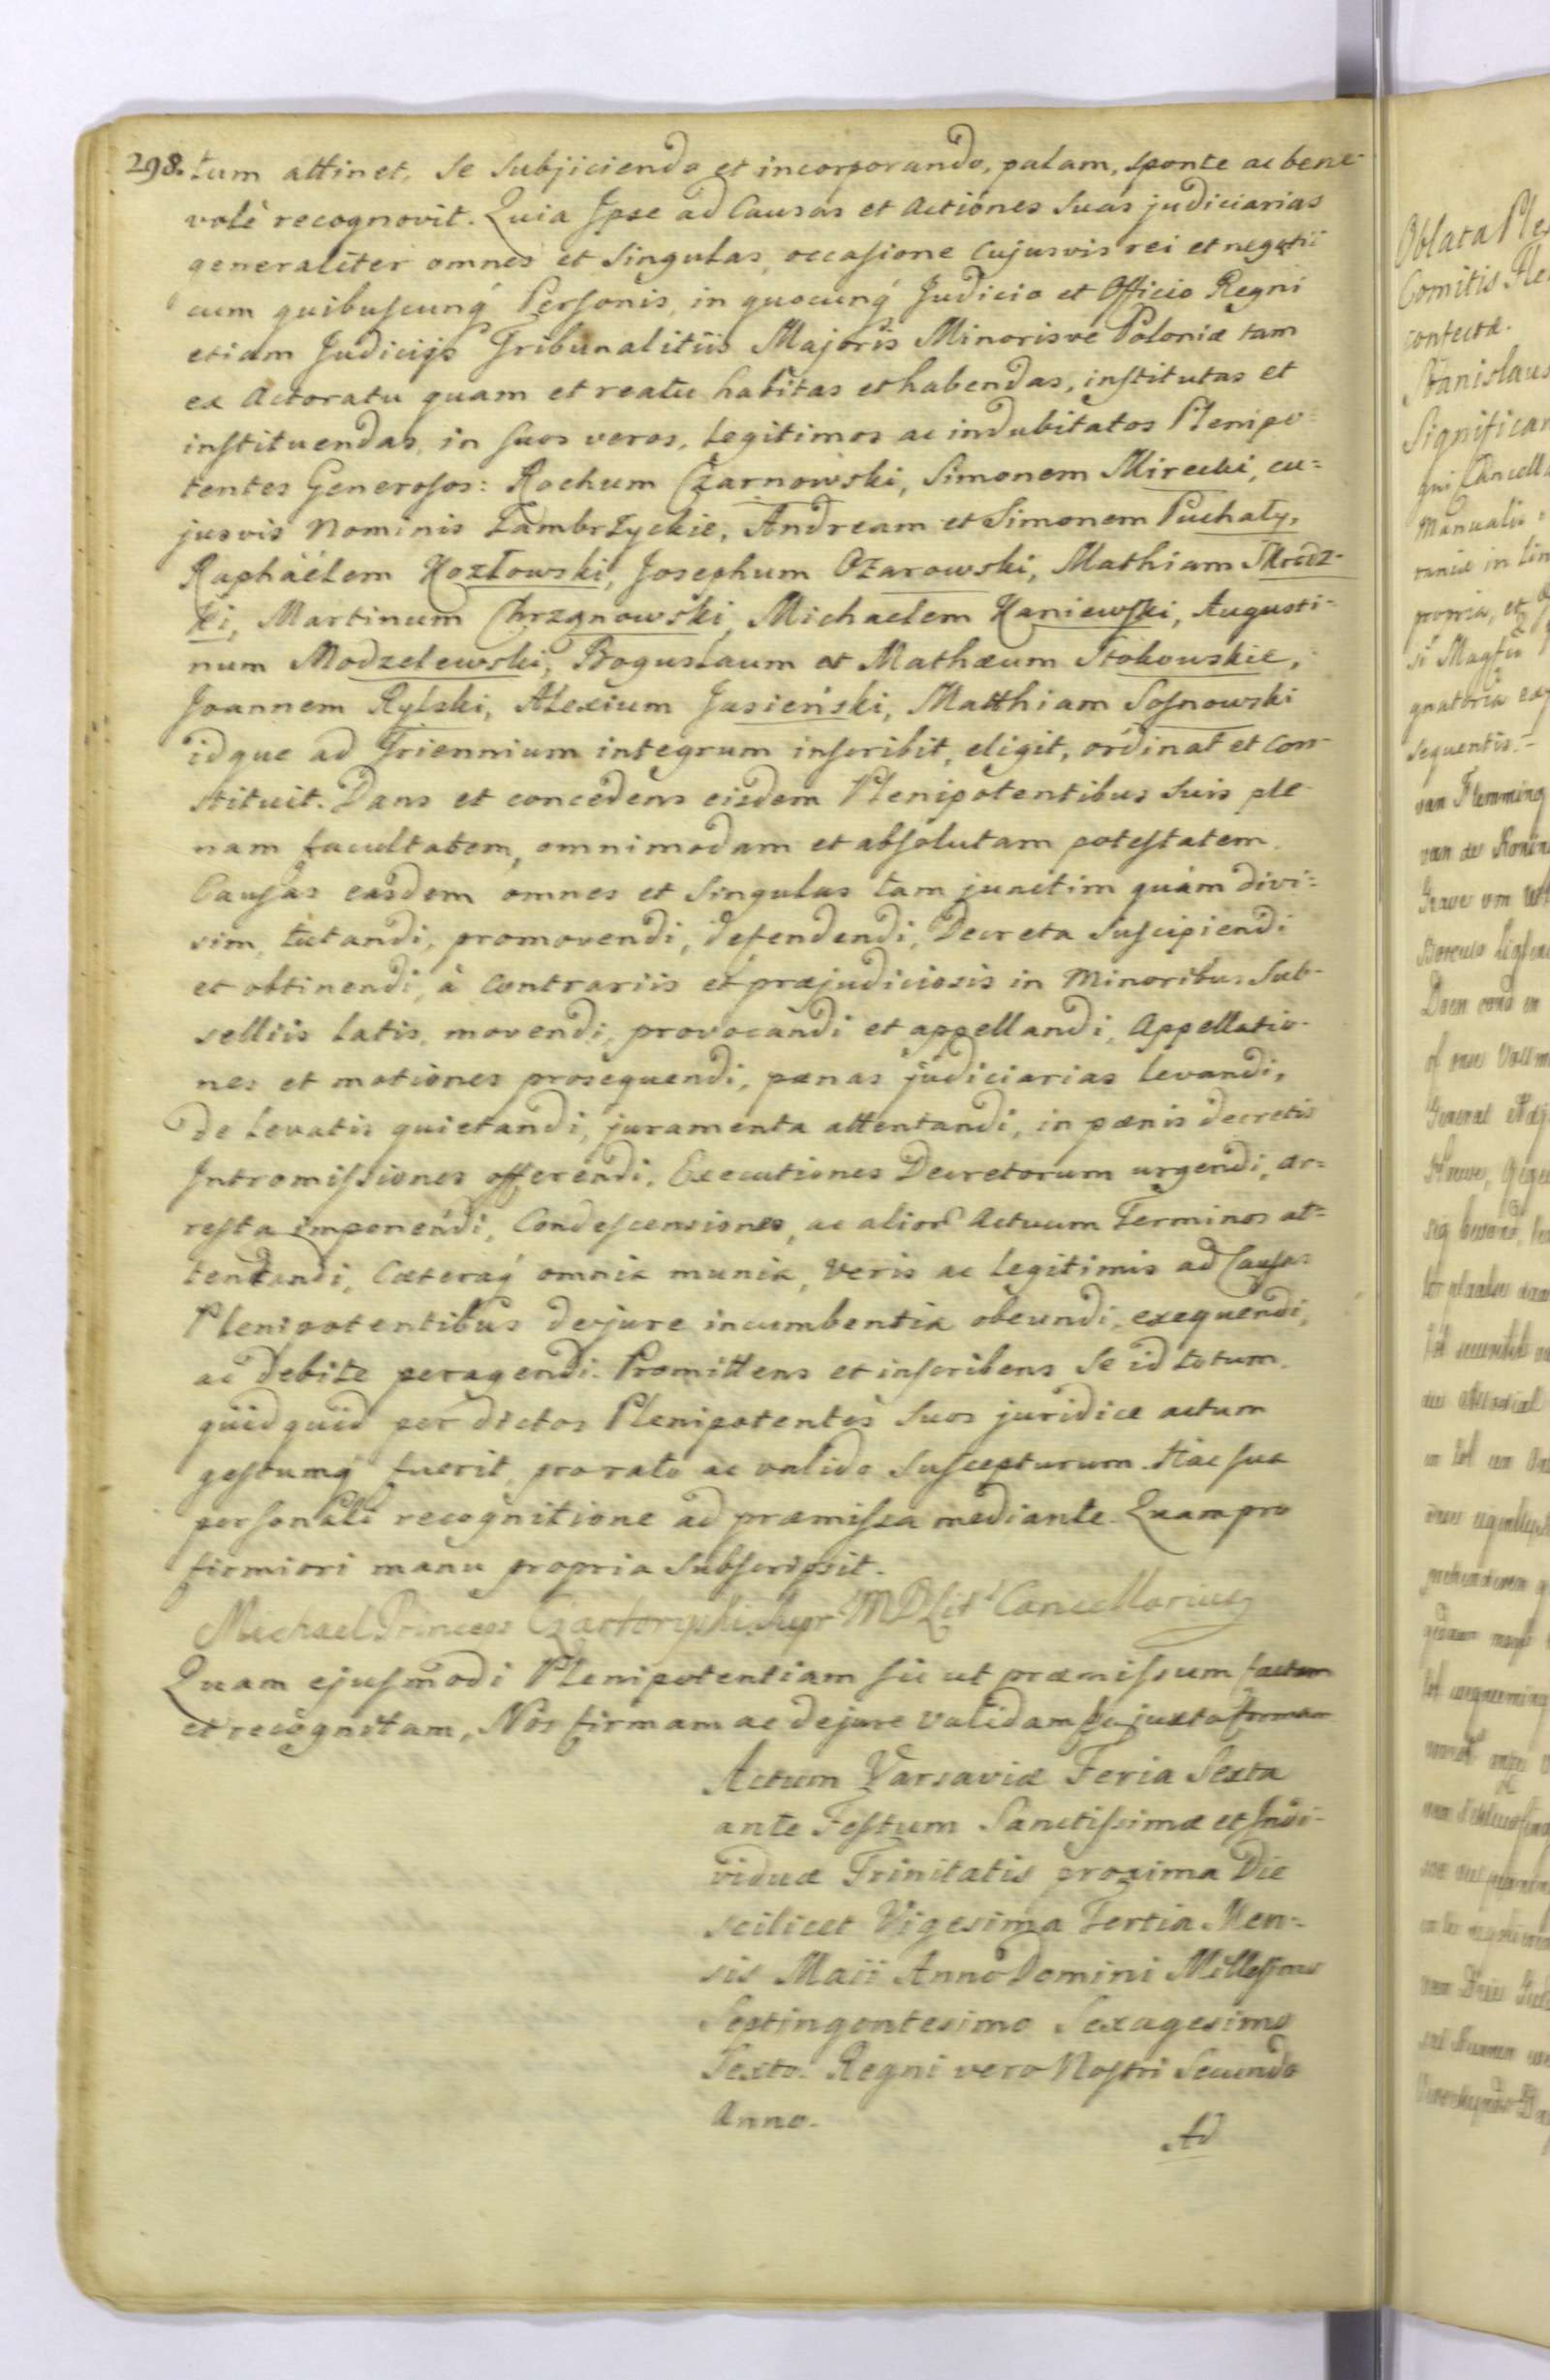 298. tum attinet, se subjiciendo et incorporando, palam, sponte ac bene-
volè recognovit. Quia Ipse ad Causas et Actiones suas judiciarias
generaliter omnes et singulas, occasione cujusvis rei et negotii
cum quibuscunq́ Personis, in quocunq́ Judicio et Officio Regni
etiam Judicijs Tribunalitiis Majoris Minorisve Poloniæ tam
ex Actoratu quam et reatu habitas et habendas, institutas et
instituendas, in suos veros, legitimos ac indubitatos Plenipo=
tentes Generosos: Rochum Czarnowski, Simonem Mirecki, cu=
jusvis Nominis Zambrzyckie, Andream et Simonem Puchały,
Raphaëlem Kozłowski, Josephum Ożarowski, Mathiam Skrodz-
ki, Martinum Chrzanowski, Michaelem Kaniewski, Augusti-
num Modzelewski, Bogusłaum et Mathæum Stokowskie,
Joannem Rylski, Alexium Jasieński, Matthiam Sosnowski
idque ad Triennium integrum inscribit, eligit, ordinat et con-
stituit. Dans et concedens eisdem Plenipotentibus suis ple-
nam facultatem, omnimodam et absolutam potestatem.
Causas easdem omnes et singulas tam junctim quàm divi=
sim, tutandi, promovendi, defendendi, Decreta suscipiendi
et obtinendi, à contrariis et præjudiciosis in Minoribus Sub-
selliis latis, movendi, provocandi et appellandi, Appellatio-
nes et motiones prosequendi, pænas judiciarias levandi,
de levatis quietandi, juramenta attentandi, in pænis decretis
Intromissiones offerendi, Executiones Decretorum urgendi, ar=
resta imponendi, Condescensiones, ac alior Actuum Terminos at=
tentandi, Cæteraq́ omnia munia, veris ac legitimis ad Causas
Plenipotentibus dejure incumbentia obeundi, exequendi,
ac debite peragendi. Promittens et inscribens se id totum.
quidquid per dictos Plenipotentes suos juridice actum
gestumq́ fuerit, pro rato ac valido suscepturum. Hac sua
personali recognitione ad præmissa mediante. Quam pro
firmiori manu propria subscripsit.
Michael Princeps Czartoryski Supr MDLit Cancellarius
Quam ejusmodi Plenipotentiam sic ut præmissum factam
et recognitam, Nos firmam ac dejure validam juxta formam
Actum Varsaviæ Feria Sexta
ante Festum Sanctissimæ et Indi-
viduæ Trinitatis proxima Die
scilicet Vigesima Tertia Men=
sis Maii Anno Domini Millesimo
Septingentesimo Sexagesimo
Sexto. Regni vero Nostri Secundo
Anno.
Ad
Oblata Ple
Comitis Fle
contecta.
Stanislaus
Significam
qui Cancell
Manualis
raniæ in
propria, et
gnatoria
sequentis.
van Flemming